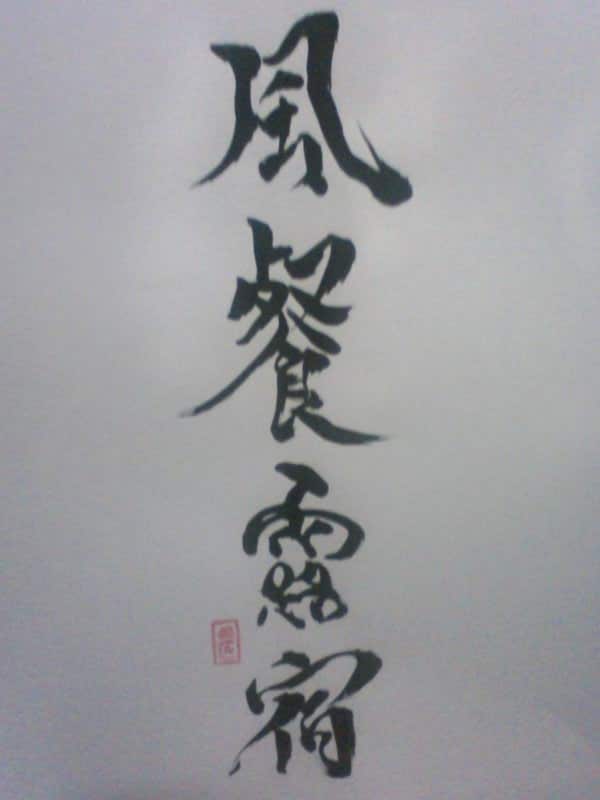 風餐露宿